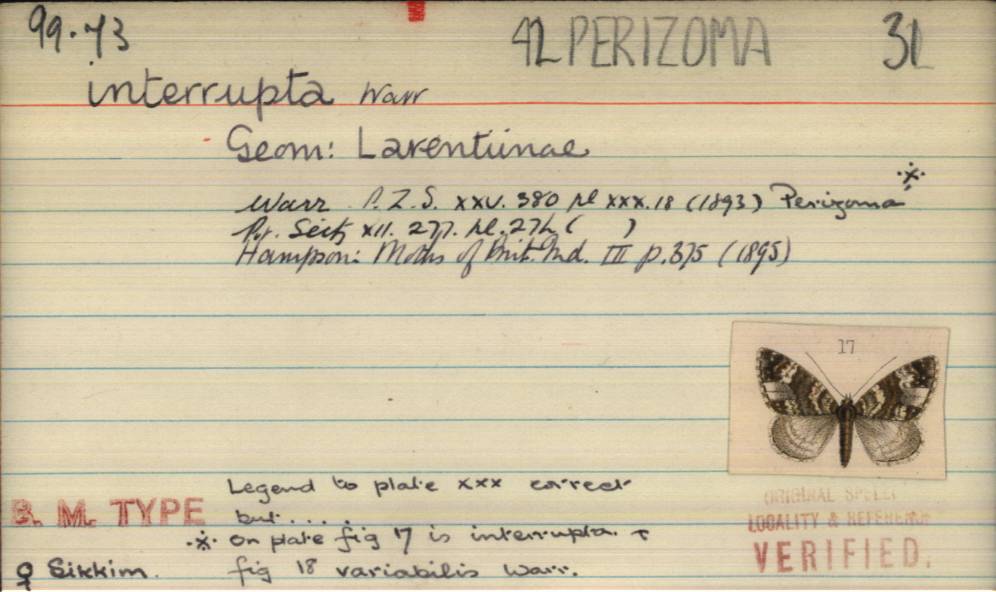 99.73 42 PERIZOMA 31
interrupta Warr
Geom: Larentiinae
Warr P.Z.S. xxv. 380 pl xxx.18 (1893) Perizoma ※
Pr. Seitz XII. 277. pl. 27h ( )
Hampson: Moths of Brit. Ind. III p.375 (1895)
17
Legend to plate xxx correct
B. M. TYPE but....
※ on plate fig 17 is interrupta. +
♀ Sikkim. fig 18 variabilis Warr.
ORIGINAL SPELL
LOCALITY & REFERENCE
VERIFIED.